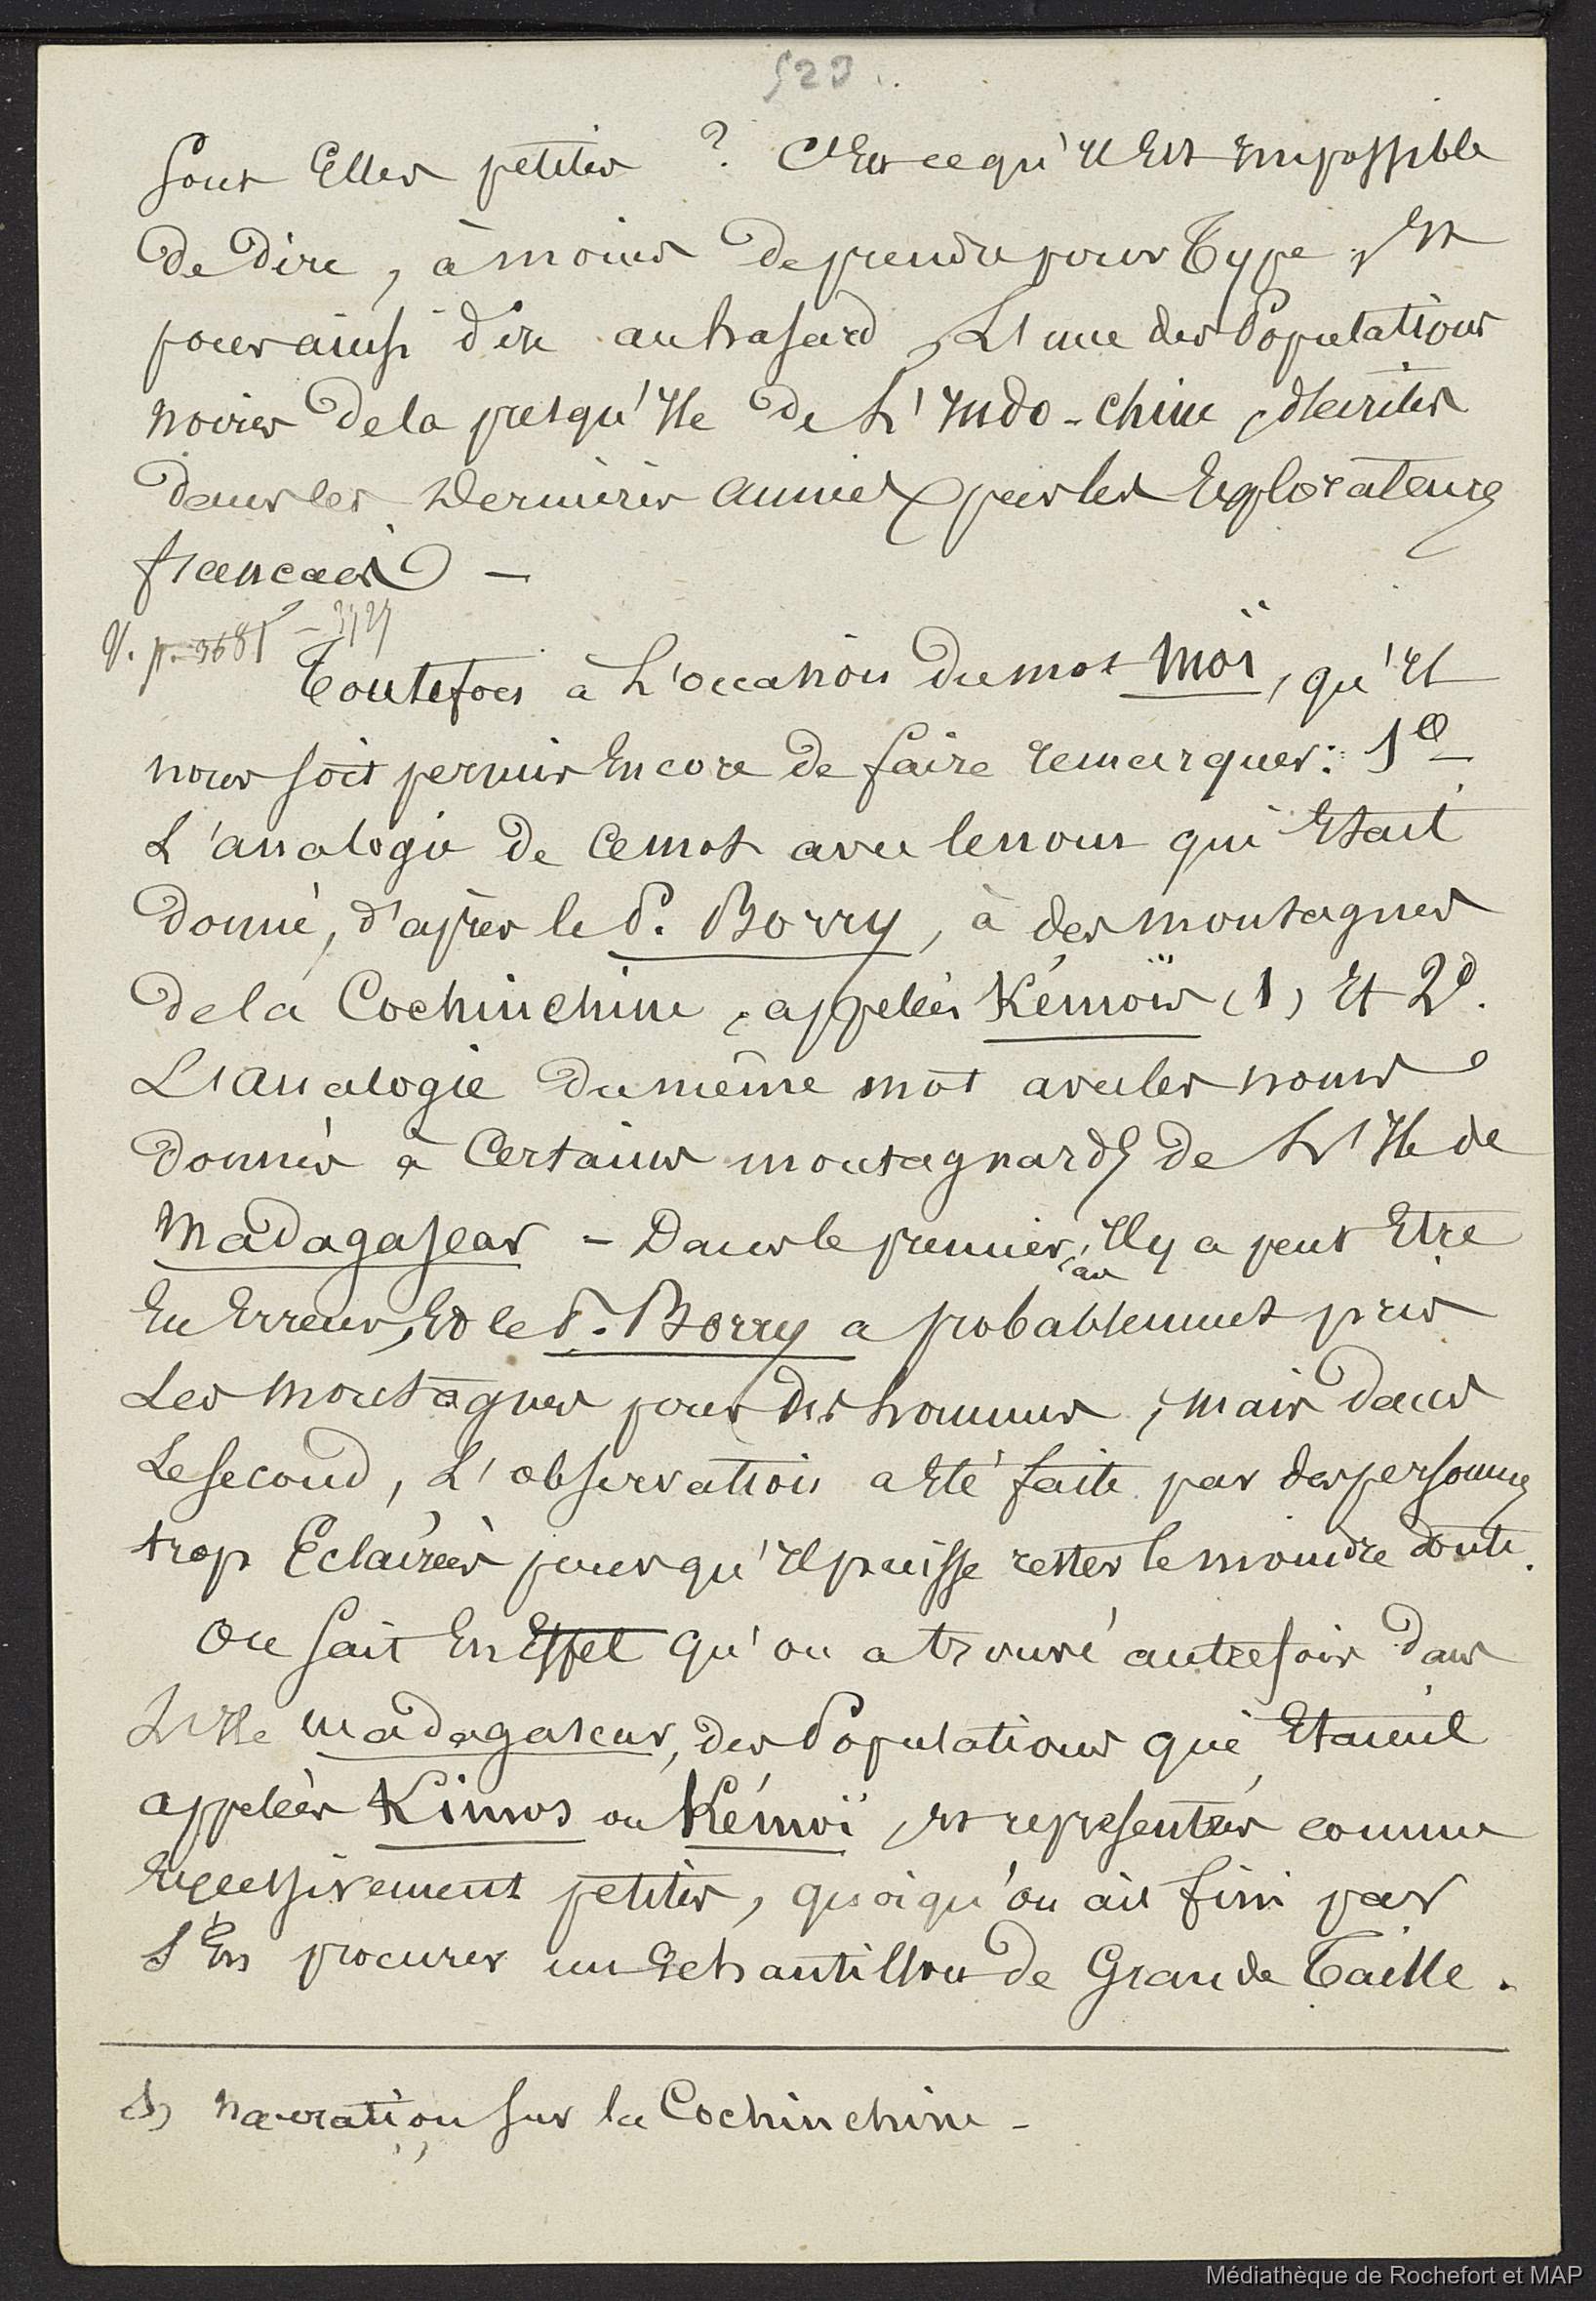 523
Sont Elles petites ? C'Est ce qu'il Est Impossible
De Dire, à moins De prendre pour Type, Et
pour ainsi dire au hasard, L'une des Populations
noires De la presqu'Ile De L'Indo-chine, décrites
dans les Dernières années par les Explorateurs
français —
V. p. 3681
Toutefois à L'occasion Du mot Moï, qu'Il
nous soit permis Encore De faire remarquer : 1º
L'analogie De Ce mot avec le nom qui Etait
Donné, d'après le P. Borry, à des montagnes
De la Cochinchine, appelées Kémoïs (1) Et 2º.
L'analogie Du même mot avec les noms
Donnés à Certains montagnards De L'Ile de
Madagascar – Dans le premier cas, Il y a peut Etre
Eu Erreur, Et le P. Borry a probablement pris
Les Montagnes pour des hommes, mais dans
Le second, L'observation a Eté faite par des personnes
trop Eclairées pour qu'Il puisse rester le moindre doute.
On sait En Effet qu'on a trouvé autrefois Dans
L'Ile Madagascar, des Populations qui Etaient
appelées Kimos ou Kémoï, Et représentées comme
Excessivement petites, quoiqu'on ait fini par
S'En procurer un Echantillon De Grande Taille.
(1) Narration sur la Cochinchine –
Médiathèque de Rochefort et MAP